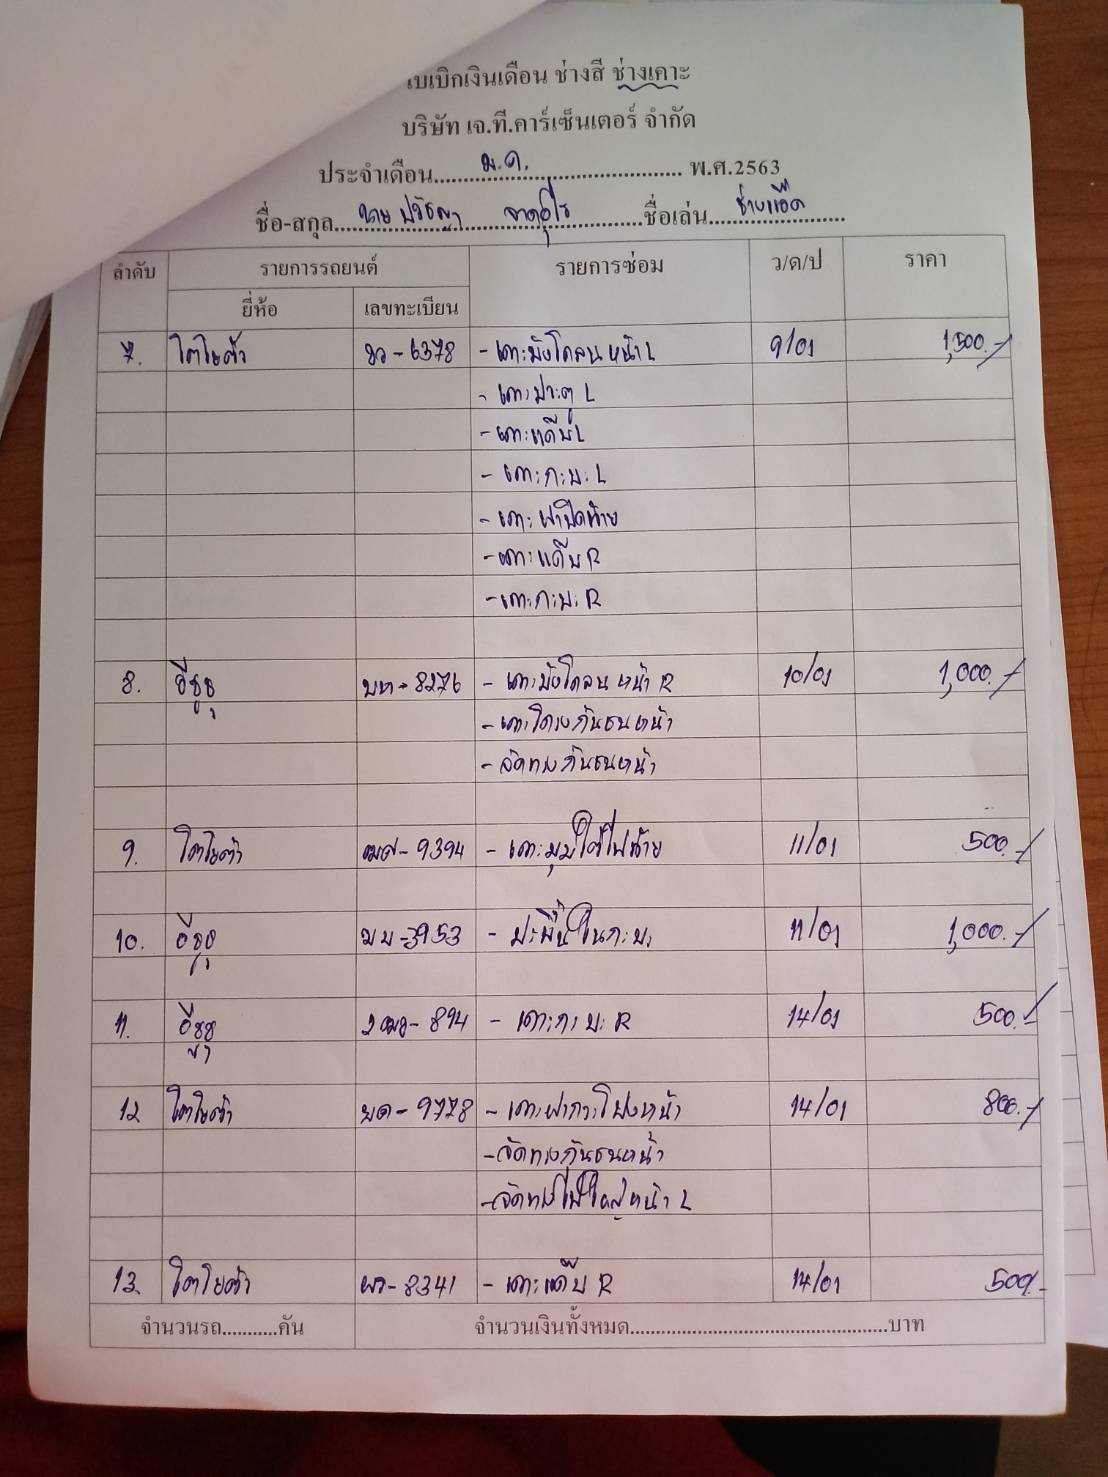 ใบเบิกเงินเดือน ช่างสี ช่างเคาะ
บริษัท เจ.ที.คาร์เซ็นเตอร์ จำกัด
ประจำเดือน......ม.ค.......พ.ศ.2563
ชื่อ-สกุล....นาย ปรัชญา.......ชื่อเล่น....ช่างแอ๊ด....
ลำดับ รายการรถยนต์ รายการซ่อม ว/ด/ป ราคา
ยี่ห้อ เลขทะเบียน
7. โตโยต้า -6378 - เคาะบังโคลนหน้า L 9/01 1,500.-
- เคาะประตู L
- เคาะแค๊บ L
- เคาะกะบะ L
- เคาะฝาปิดท้าย
- เคาะแค๊บ R
- เคาะกะบะ R
8. อีซูซุ บท-8276 - เคาะบังโคลนหน้า R 10/01 1,000.-
- เคาะโครงกันชนหน้า
- จัดทรงกันชนหน้า
9. โตโยต้า -9394 - เคาะมุมใต้ไฟท้าย 11/01 500.-
10. อีซูซุ -3953 - ปะพื้นในกะบะ 11/01 1,000.-
11. อีซูซุ -894 - เคาะกะบะ R 14/01 500.-
12. โตโยต้า บด-9778 - เคาะฝากระโปรงหน้า 14/01 800.-
- จัดทรงกันชนหน้า
- จัดทรงไฟใหญ่หน้า L
13. โตโยต้า ผว-8341 - เคาะแค๊บ R 14/01 500.-
จำนวนรถ...........คัน จำนวนเงินทั้งหมด..............................................บาท